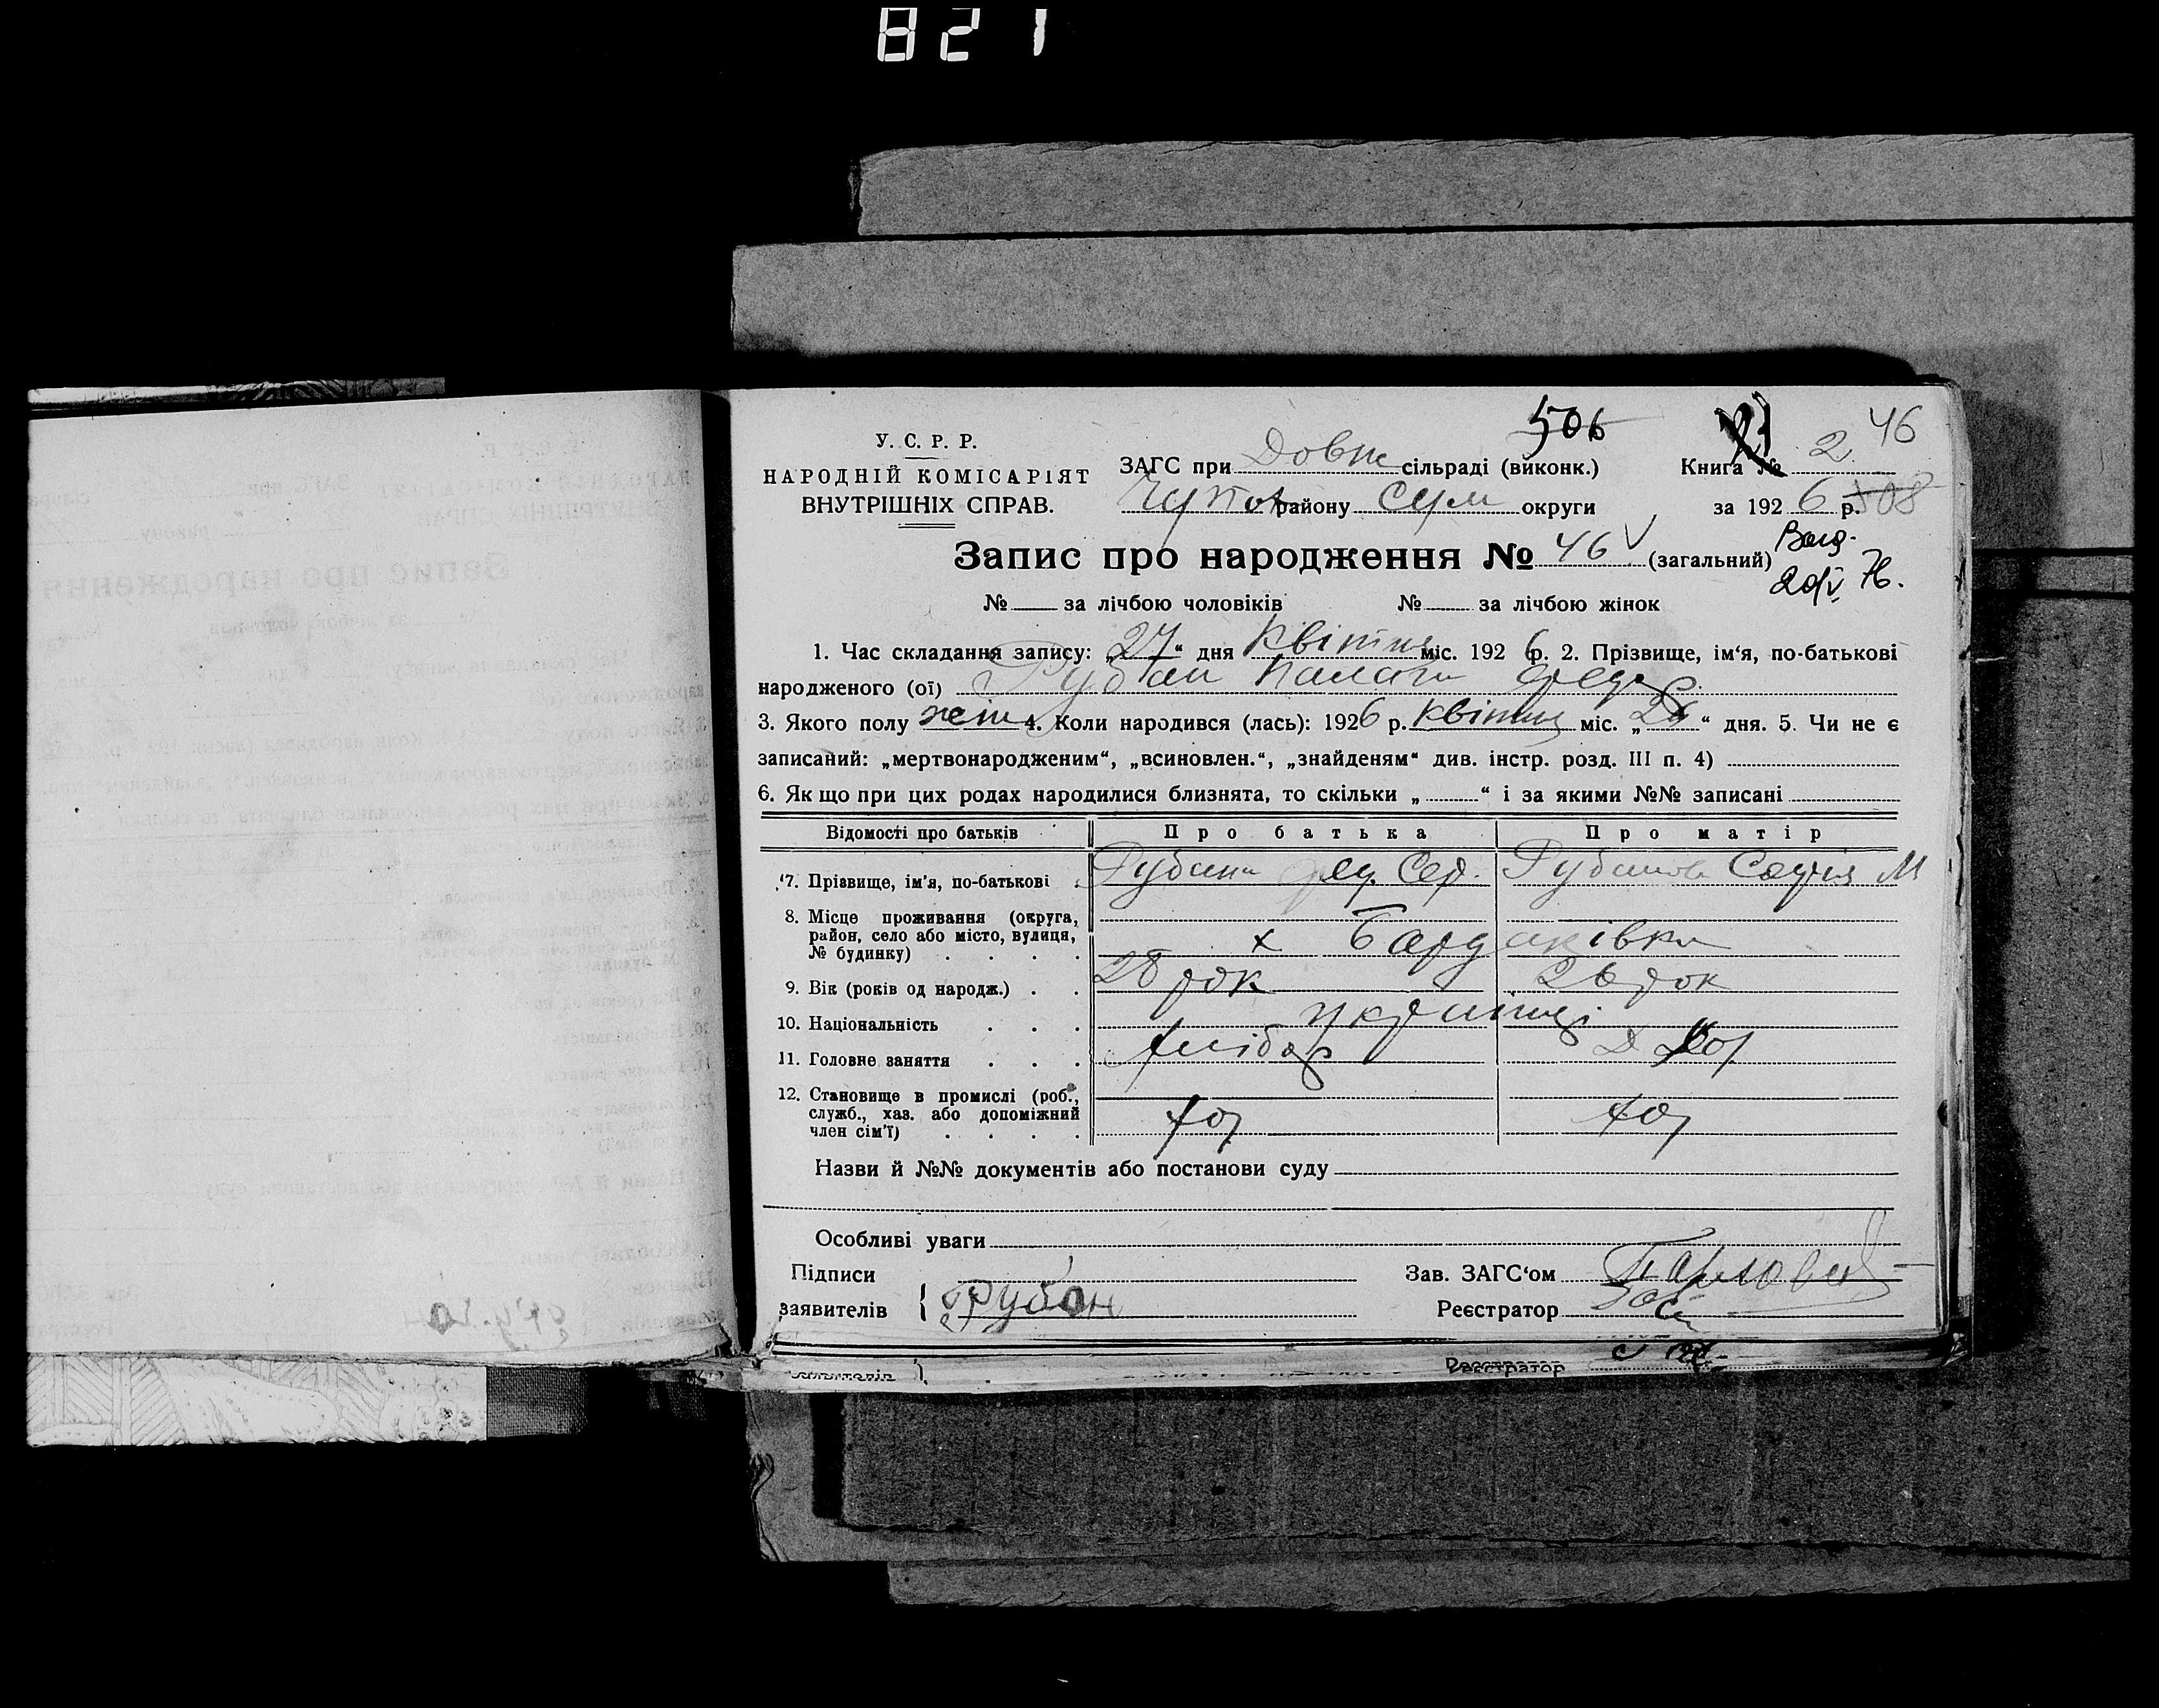 821
506
46
У. С. Р. Р.
НАРОДНІЙ КОМІСАРІЯТ
ВНУТРІШНІХ СПРАВ.
ЗАГС при Довж сільраді (виконк.)
Книга № 2
району Сум округи
за 1926 р. 508
Запис про народження № 46 (загальний)
20/V 76.
№ за лічбою чоловіків № за лічбою жінок
1. Час складання запису: „27“ дня Квітня міс. 1926 р. 2. Прізвище, ім‘я, по-батькові
народженого (ої) Рубан Палаг Федор
3. Якого полу жін 4. Коли народився (лась): 1926 р. Квітня міс. „26“ дня. 5. Чи не є
записаний: „мертвонародженим“, „всиновлен.“, „знайденям“ див. інстр. розд. III п. 4)
6. Як що при цих родах народилися близнята, то скільки „ “ і за якими №№ записані
Відомості про батьків Про батька Про матір
7. Прізвище, ім'я, по-батькові Рубан Фед. Сер. Рубанова Софія М
8. Місце проживання (округа,
район, село або місто, вулиця,
№ будинку) х Бардаківка
9. Вік (років од народж.) 28 рок 26 рок
10. Національність українці
11. Головне заняття хлібор
12. Становище в промислі (роб.,
служб., хаз. або допоміжний
член сім'ї)
Назви й №№ документів або постанови суду
Особливі уваги
Підписи
заявителів Рубан
Зав. ЗАГС‘ом
Реєстратор
Реєстратор